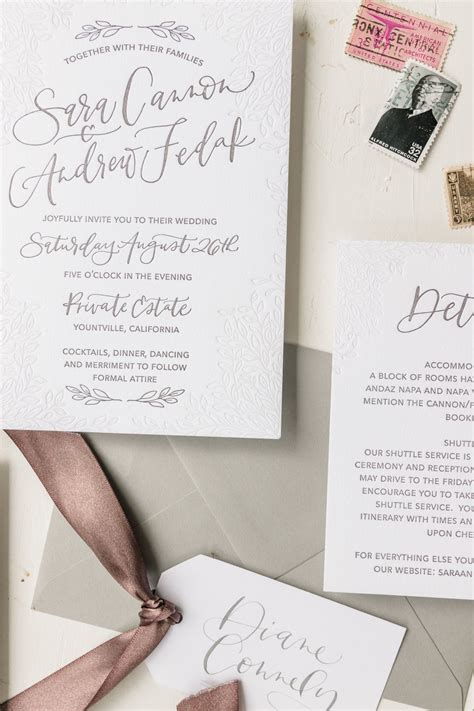 TOGETHER WITH THEIR FAMILIES
Sara Cannon
&
Andrew Fedak
JOYFULLY INVITE YOU TO THEIR WEDDING
Saturday August 26th
FIVE O'CLOCK IN THE EVENING
Private Estate
YOUNTVILLE, CALIFORNIA
COCKTAILS, DINNER, DANCING
AND MERRIMENT TO FOLLOW
FORMAL ATTIRE
CENTENNIAL
AMERICAN
ARCHITECTS
UNITED STATES
ALFRED HITCHCOCK
32
USA
Det
ACCOMMO
A BLOCK OF ROOMS HA
ANDAZ NAPA AND NAPA
MENTION THE CANNON/F
BOOK
SHUTTLE
OUR SHUTTLE SERVICE IS
CEREMONY AND RECEPTION
MAY DRIVE TO THE FRIDAY
ENCOURAGE YOU TO TAKE
SHUTTLE SERVICE. YOU
ITINERARY WITH TIMES AN
UPON CHE
FOR EVERYTHING ELSE YOU
OUR WEBSITE: SARAAN
Diane
Connely